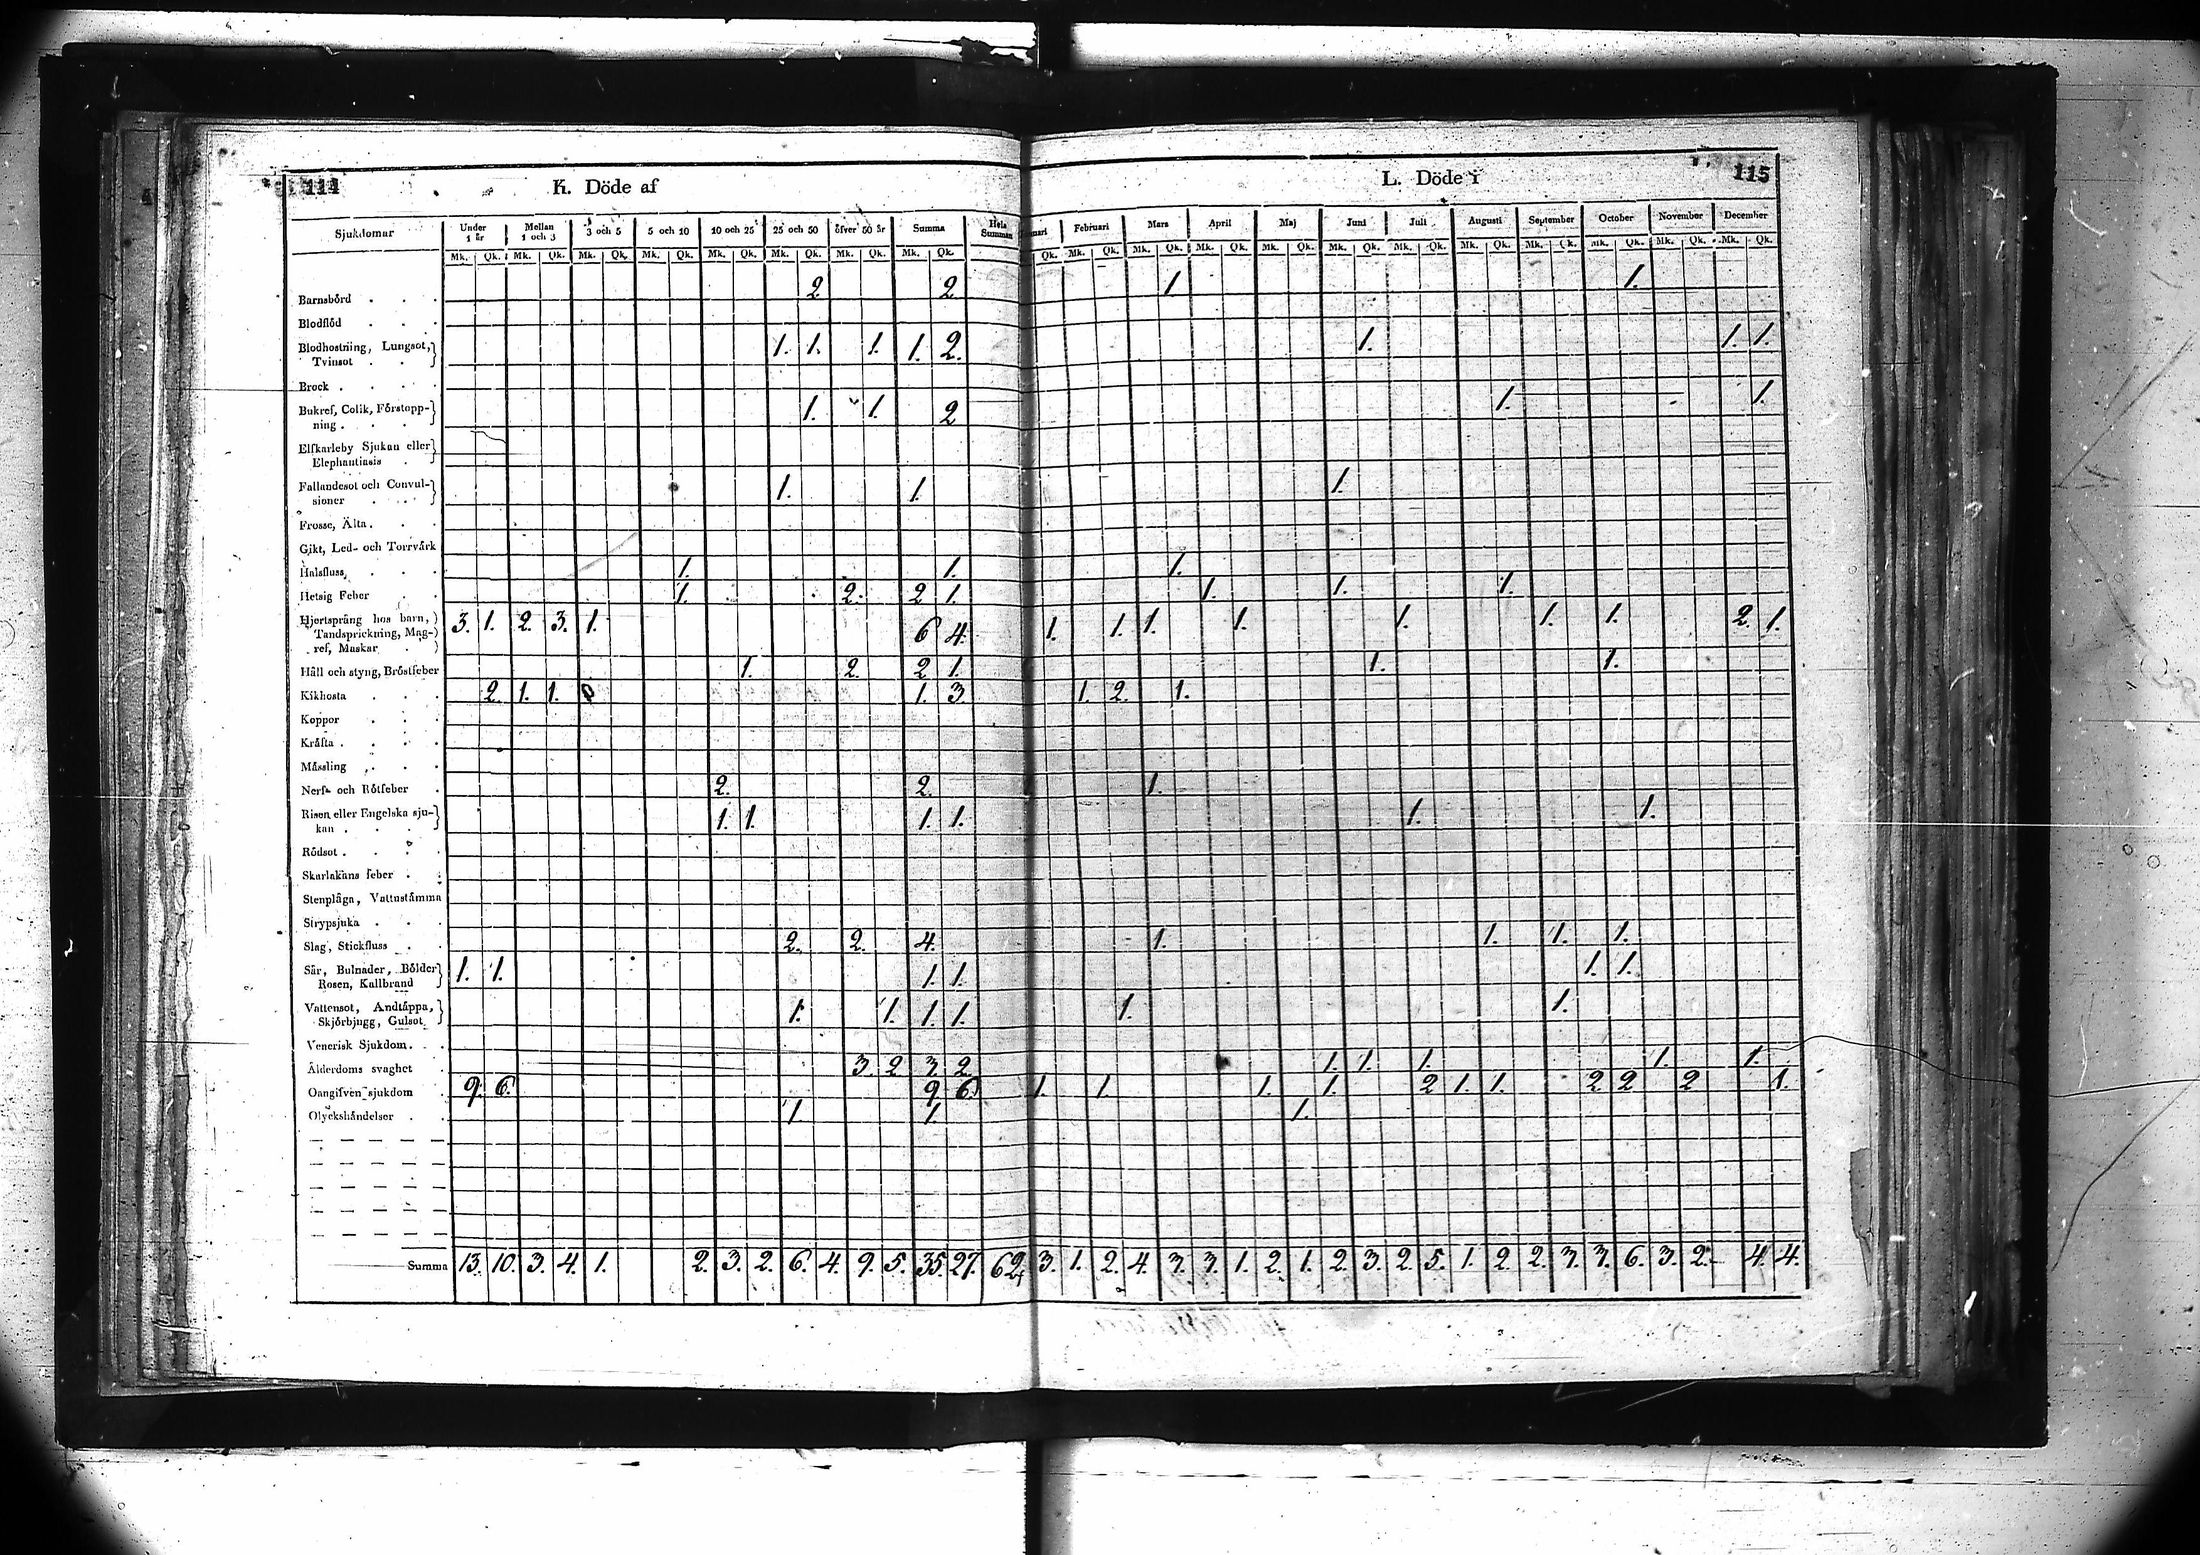 111 K. Döde af L. Döde i 115
Sjukdomar Under 1 år Mellan 1 och 3 3 och 5 5 och 10 10 och 25 25 och 50 öfver 50 år Summa Hela Summan Februari Mars April Maj Juni Juli Augusti September October November December
Mk. Qk. Mk. Qk. Mk. Qk. Mk. Qk. Mk. Qk. Mk. Qk. Mk. Qk. Mk. Qk. Qk. Mk. Qk. Mk. Qk. Mk. Qk. Mk. Qk. Mk. Qk. Mk. Qk. Mk. Qk. Mk. Qk. Mk. Qk. Mk. Qk. Mk. Qk.
Barnsbörd . . . 2 2 1 1.
Blodflöd . . .
Blodhostning, Lungsot, Tvinsot . . 1. 1. 1. 1. 2. 1. 1. 1.
Brock . . . .
Bukref, Colik, Förstoppning . . . 1. 1. 2 1. 1.
Elfkarleby Sjukan eller Elephantiasis .
Fallandesot och Convulsioner . . . 1. 1. 1.
Frosse, Älta . . .
Gikt, Led- och Torrvärk
Halsfluss . . . 1. 1. 1.
Hetsig Feber . . 1. 2. 2 1. 1. 1. 1.
Hjertsprång hos barn, Tandsprickning, Magref, Maskar . 3. 1. 2. 3. 1. 6 4. 1. 1. 1. 1. 1. 1. 1. 2. 1.
Håll och styng, Bröstfeber 1. 2. 2 1. 1. 1.
Kikhosta . . . 2. 1. 1. 1. 3. 1. 2. 1.
Koppor . . .
Kräfta . . . .
Mässling . . .
Nerf- och Rötfeber . 2. 2. 1.
Risen eller Engelska sjukan . . . 1. 1. 1. 1. 1. 1.
Rödsot . . . .
Skarlakans feber . .
Stenplåga, Vattustämma
Strypsjuka . . .
Slag, Stickfluss . . 2. 2. 4. 1. 1. 1. 1.
Sår, Bulnader, Bölder Rosen, Kallbrand 1. 1. 1. 1. 1. 1.
Vattensot, Andtäppa, Skjörbjugg, Gulsot 1. 1. 1. 1. 1. 1.
Venerisk Sjukdom . . .
Ålderdoms svaghet . 3. 2 3. 2 1. 1. 1. 1. 1.
Oangifven sjukdom . 9. 6. 9. 6. 1. 1. 1. 1. 2 1. 1. 2 2 2 1.
Olyckshändelser . . 1. 1. 1.
Summa 13. 10. 3. 4. 1. 2. 3. 2. 6. 4. 9. 5. 35. 27. 62 3. 1. 2. 4. 3. 3. 1. 2. 1. 2. 3. 2. 5. 1. 2. 2. 3. 3. 6. 3. 2. 4. 4.